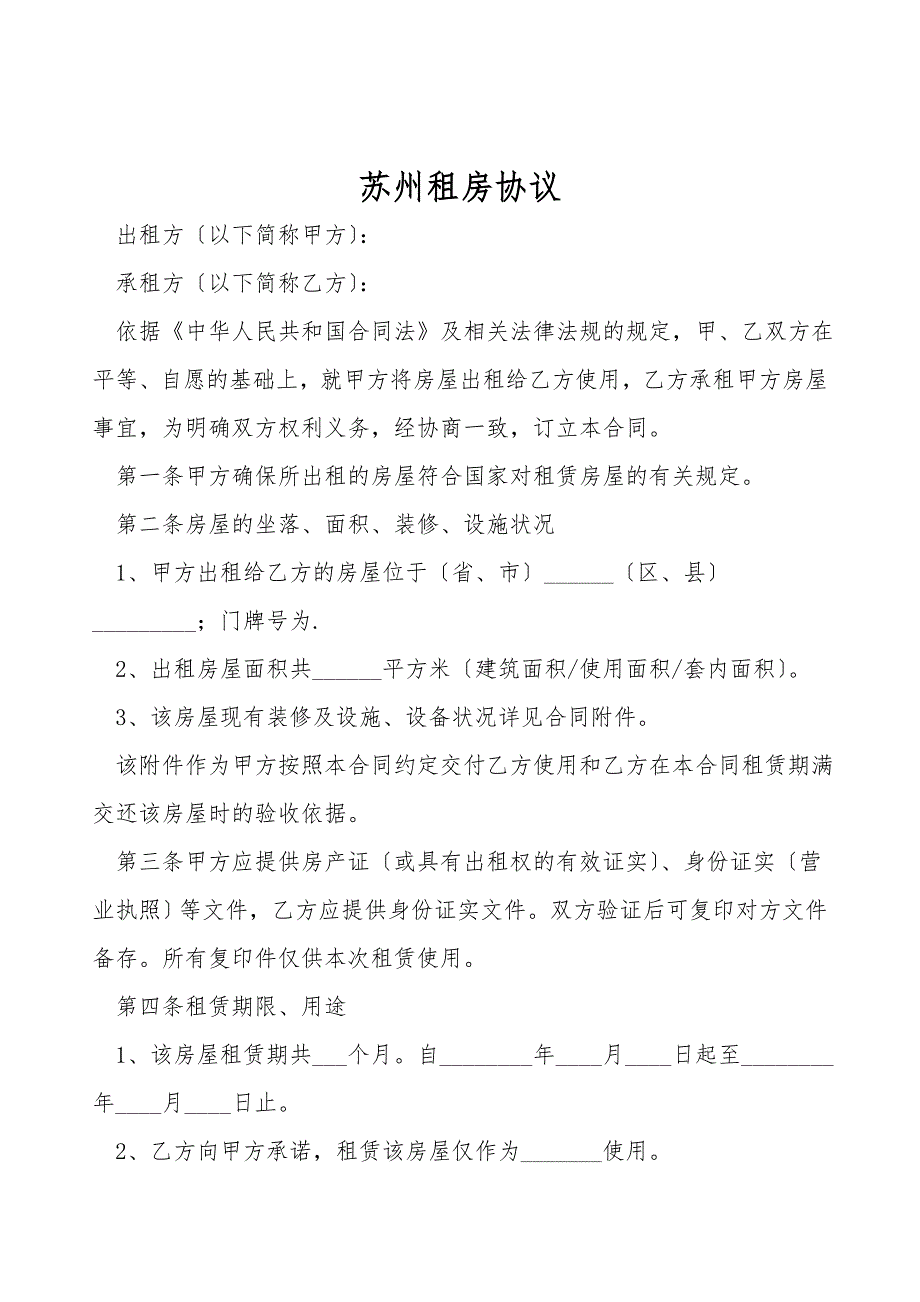 苏州租房协议
出租方〔以下简称甲方〕：
承租方〔以下简称乙方〕：
依据《中华人民共和国合同法》及相关法律法规的规定，甲、乙双方在
平等、自愿的基础上，就甲方将房屋出租给乙方使用，乙方承租甲方房屋
事宜，为明确双方权利义务，经协商一致，订立本合同。
第一条甲方确保所出租的房屋符合国家对租赁房屋的有关规定。
第二条房屋的坐落、面积、装修、设施状况
1、甲方出租给乙方的房屋位于〔省、市〕______〔区、县〕
_________；门牌号为.
2、出租房屋面积共______平方米〔建筑面积/使用面积/套内面积〕。
3、该房屋现有装修及设施、设备状况详见合同附件。
该附件作为甲方按照本合同约定交付乙方使用和乙方在本合同租赁期满
交还该房屋时的验收依据。
第三条甲方应提供房产证〔或具有出租权的有效证实〕、身份证实〔营
业执照〕等文件，乙方应提供身份证实文件。双方验证后可复印对方文件
备存。所有复印件仅供本次租赁使用。
第四条租赁期限、用途
1、该房屋租赁期共___个月。自________年____月____日起至________
年____月____日止。
2、乙方向甲方承诺，租赁该房屋仅作为_______使用。